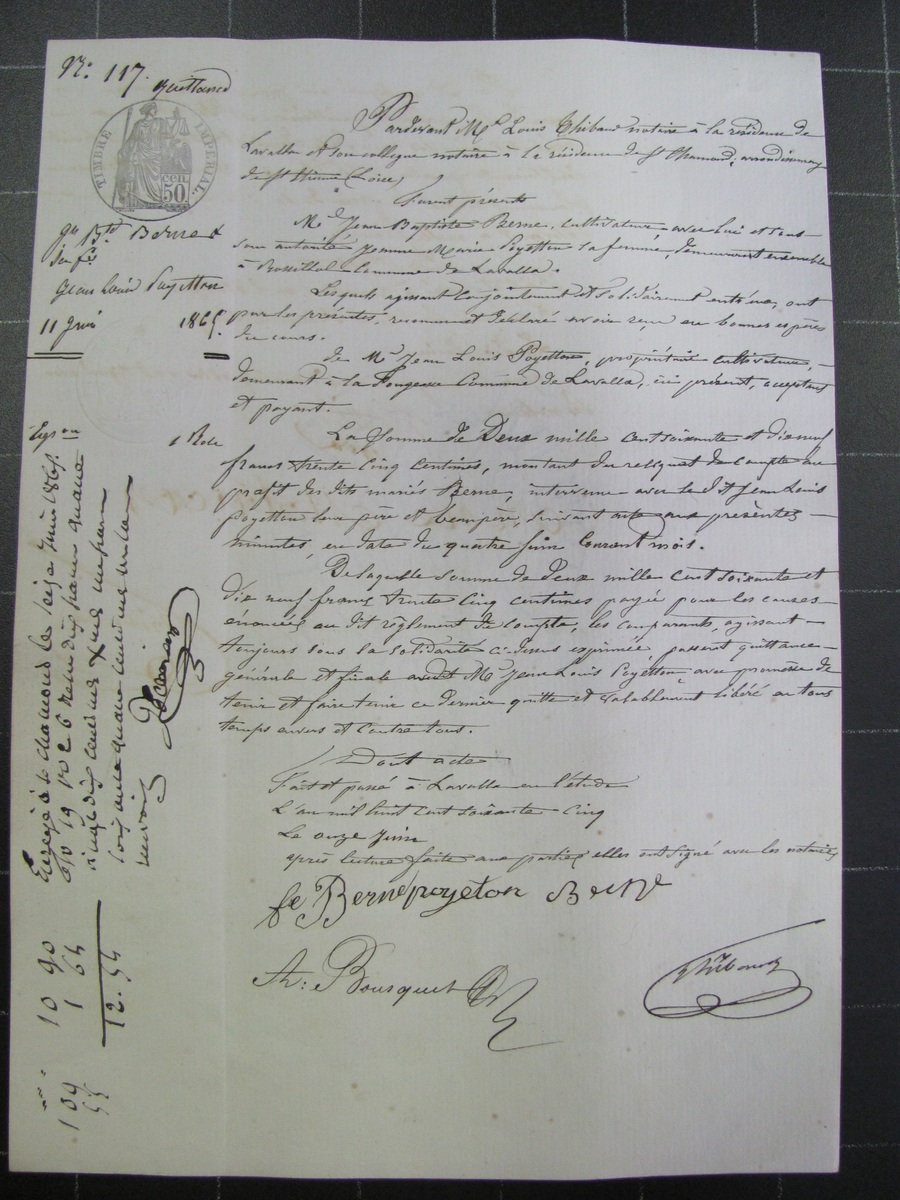 No. 117. quittance
TIMBRE IMPERIAL
50 cen
Jn Bte Berne &
sa fe
Jean Louis Poyetton
11 Juin 1865.
1 Role
Pardevant Me Louis Thibaud notaire à la résidence de
Lavalla et son collègue notaire à la résidence de St Chamond, arrondissement
de St Etienne (Loire)
Furent présents
Mr Jean Baptiste Berne, cultivateur avec lui et sous
son autorité Jeanne Marie Poyetton sa femme, demeurant ensemble
à Commune de Lavalla.
Lesquels agissant conjointement et solidairement entr'eux, ont
par les présentes, reconnu et déclaré avoir reçu en bonnes espèces
du cours.
de Mr Jean Louis Poyetton, propriétaire cultivateur,
demeurant à la Fougeas Commune de Lavalla, ici présent, acceptant
et payant.
La Somme de Deux mille cent soixante et dix neuf
francs trente cinq centimes, montant du reliquat de compte au
profit des dits mariés Berne, intervenu avec le dt Jean Louis
poyetton leur père et beau père, suivant acte aux présentes
minutes, en date du quatre Juin Courant mois.
De laquelle Somme de Deux mille cent soixante et
dix neuf francs trente cinq centimes payée pour les causes
énoncées au dit règlement de compte, les comparants, agissant
toujours sous la solidarité ci-dessus exprimée, passent quittance
générale et finale audit Mr Jean Louis Poyetton, avec promesse de
tenir et faire tenir ce dernier quitte et valablement libéré en tous
temps envers et contre tous.
Dont acte
Fait et passé à Lavalla en l'étude
L'an mil huit cent soixante cinq
Le onze Juin
après lecture faite aux parties elles ont signé avec les notaires
fe Berne poyeton Berne
A: Bousquet
Thibaud
Enregistré à St Chamond le seize Juin 1865.
fo 19 vo c 6 Reçu dix francs quatre
vingt dix centimes
soixante quatre centimes
10 90
1 64
12.54
109